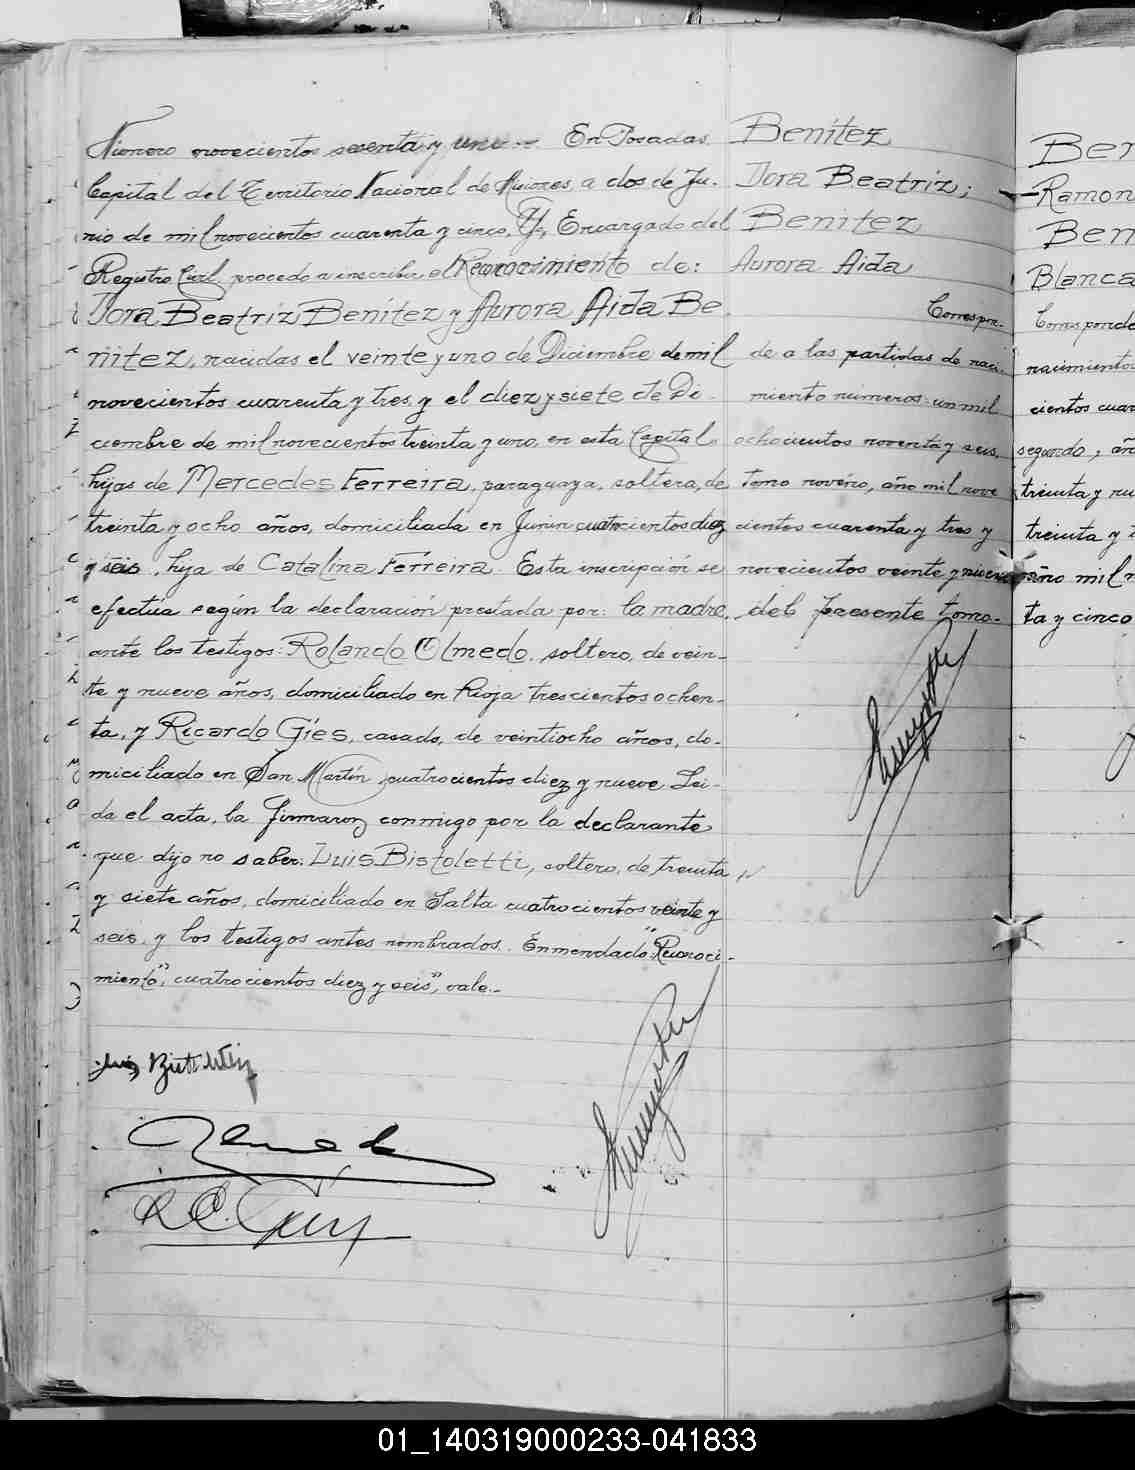 Número novecientos sesenta y uno.- En Posadas
Capital del Territorio Nacional de Misiones, a dos de Ju-
nio de mil novecientos cuarenta y cinco, Yo, Encargado del
Registro Civil, procedo a inscribir el Reconocimiento de:
Dora Beatriz Benítez y Aurora Aida Be
nítez, nacidas el veinte y uno de Diciembre de mil
novecientos cuarenta y tres y el diez y siete de Di-
ciembre de mil novecientos treinta y uno, en esta Capital
hijas de Mercedes Ferreira, paraguaya, soltera, de
treinta y ocho años, domiciliada en Junin cuatrocientos diez
y seis, hija de Catalina Ferreira. Esta inscripción se
efectúa según la declaración prestada por: la madre,
ante los testigos: Rolando Olmedo, soltero, de vein-
te y nueve años, domiciliado en Rioja trescientos ochen-
ta, y Ricardo Gies, casado, de veintiocho años, do-
miciliado en San Martín cuatrocientos diez y nueve. Leí-
da el acta, la firmaron conmigo por la declarante
que dijo no saber: Luis Bistoletti, soltero, de treinta
y siete años, domiciliado en Salta cuatrocientos veinte y
seis, y los testigos antes nombrados. Enmendado "Reconoci-
miento", cuatrocientos diez y seis", vale.-
Benítez
Dora Beatriz;
Benítez
Aurora Aida
Correspon-
de a las partidas de naci-
miento números: un mil
ochocientos noventa y seis,
tomo noveno, año mil nove
cientos cuarenta y tres y
novecientos veinte y nueve
del presente tomo.-
Ramon
Blanca
Corresponde
nacimientos
cientos cuar
segundo, añ
treinta y nu
treinta y
año mil n
ta y cinco
Olmedo
R. C. Gies
01_140319000233-041833